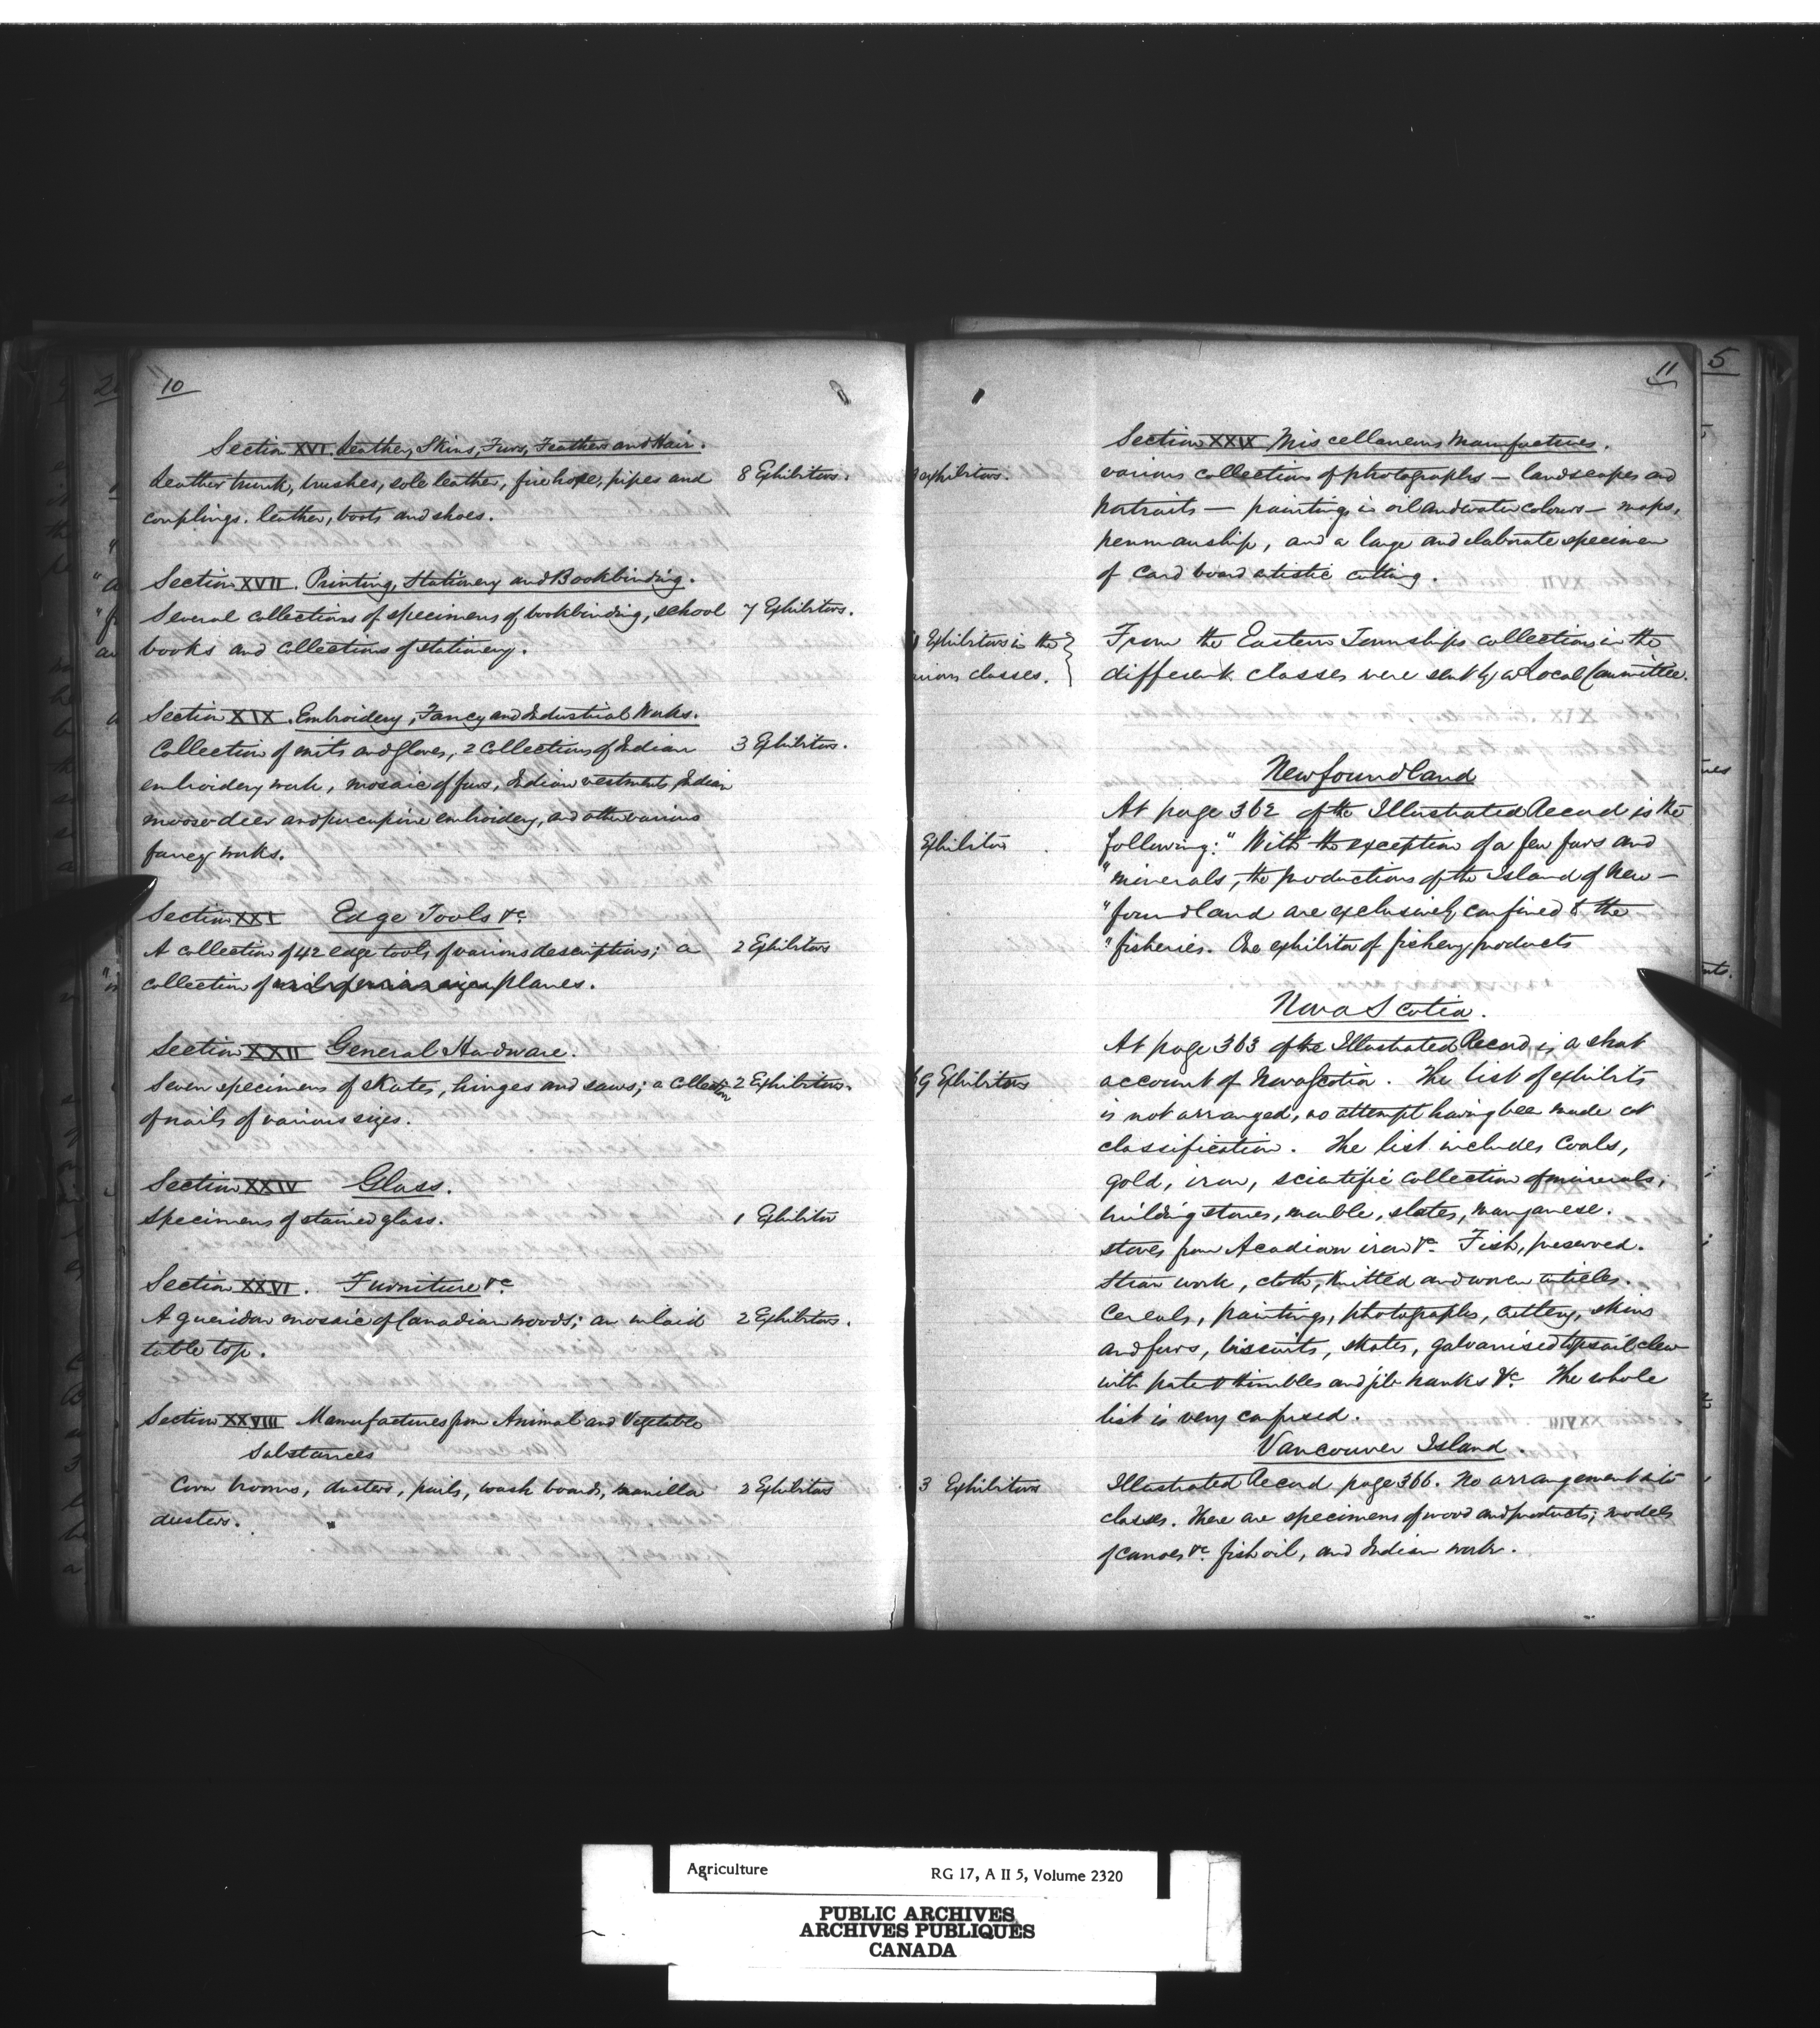 10
Section XVI. Leather, Skins, Furs, Feathers and Hair.
Leather trunk, brushes, sole leather, fire hose, pipes and 8 Exhibitors.
couplings. leather, boots and shoes.
Section XVII. Printing, Stationery and Bookbinding.
Several collections of specimens of bookbinding, school 7 Exhibitors.
books and collections of stationery.
Section XIX. Embroidery, Fancy and Industrial Works.
Collection of mits and gloves, 2 collections of Indian 3 Exhibitors.
embroidery work, mosaic of furs, Indian vestments, Indian
moose-deer and porcupine embroidery, and other various
fancy works.
Section XXI Edge Tools &c
A collection of 42 edge tools of various descriptions; a 2 Exhibitors
collection of planes.
Section XXII General Hardware.
Seven specimens of skates, hinges and saws; a collection 2 Exhibitors.
of nails of various sizes.
Section XXIV Glass.
Specimens of stained glass. 1 Exhibitor
Section XXVI. Furniture &c
A gueridon mosaic of Canadian woods; an inlaid 2 Exhibitors.
table top.
Section XXVIII Manufactures from Animal and Vegetable
Substances
Corn brooms, dusters, pails, wash boards, manilla 2 Exhibitors
dusters.
11
5
Section XXIX Miscellaneous Manufactures.
exhibitors. various collections of photographs — landscapes and
portraits — paintings in oil and water colours — maps,
penmanship, and a large and elaborate specimen
of card board artistic cutting.
Exhibitors in the From the Eastern Townships collections in the
classes. different classes were sent by a Local Committee.
Newfoundland
At page 362 of the Illustrated Record is the
Exhibitor following: "With the exception of a few furs and
"minerals, the productions of the Island of New-
"foundland are exclusively confined to the
"fisheries. One exhibitor of fishery products
Nova Scotia.
At page 363 of the Illustrated Record is a short
9 Exhibitors account of Nova Scotia. The list of exhibits
is not arranged, no attempt having bee made at
classification. The list includes Coals,
gold, iron, scientific collection of minerals,
building stones, marble, slates, manganese.
stoves from Acadian iron &c. Fish, preserved.
Straw work, cloth, knitted and woven articles.
Cereals, paintings, photographs, cutlery, skins
and furs, biscuits, skates, galvanised topsail clew
with patent thimbles and jib hanks &c. The whole
list is very confused.
Vancouver Island.
3 Exhibitors Illustrated Record page 366. No arrangement into
classes. There are specimens of wood and products; models
of canoes &c. fish oil, and Indian work.
Agriculture RG 17, A II 5, Volume 2320
PUBLIC ARCHIVES
ARCHIVES PUBLIQUES
CANADA